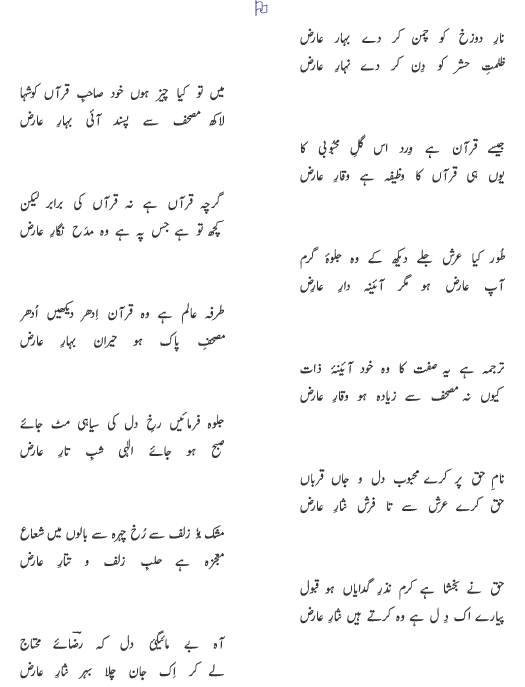 نارِ دوزخ کو چمن کر دے بہار عارض
ظلمتِ حشر کو دِن کر دے نہار عارض
میں تو کیا چیز ہوں خود صاحبِ قرآں کوشہا
لاکھ مصحف سے پسند آئی بہارِ عارض
جیسے قرآن ہے وِرد اس گلِ محبوبی کا
یوں ہی قرآں کا وظیفہ ہے وقارِ عارض
گرچہ قرآں ہے نہ قرآں کی برابر لیکن
کچھ تو ہے جس پہ ہے وہ مدَح نگارِ عارض
طُور کیا عرش جلے دیکھ کے وہ جلوۂ گرم
آپ عارض ہو مگر آئینہ دارِ عارض
طرفہ عالم ہے وہ قرآن اِدھر دیکھیں اُدھر
مصحفِ پاک ہو حیران بہارِ عارض
ترجمہ ہے یہ صفت کا وہ خود آئینۂ ذات
کیوں نہ مصحف سے زیادہ ہو وقارِ عارض
جلوہ فرمائیں رخِ دل کی سیاہی مٹ جائے
صبح ہو جائے الٰہی شبِ تارِ عارض
نامِ حق پر کرے محبوب دل و جاں قرباں
حق کرے عرش سے تا فرش نثارِ عارض
مشک بُو زلف سے رُخ چہرہ سے بالوں میں شعاع
معجزہ ہے حلبِ زلف و تتارِ عارض
حق نے بخشا ہے کرم نذرِ گدایاں ہو قبول
پیارے اک دِل ہے وہ کرتے ہیں نثارِ عارض
آہ بے مائیگیِ دل کہ رضؔائے محتاج
لے کر اِک جان چلا بہر نثارِ عارض